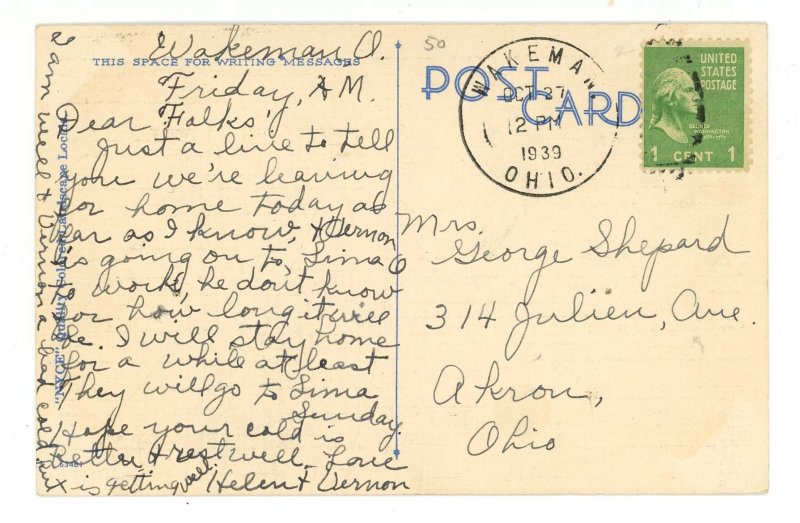 Wakeman O.
THIS SPACE FOR WRITING MESSAGES
Friday, A.M.
Dear Folks;
Just a line to tell
you we're leaving
for home today as
far as I know, + Vernon
is going on to, Lima O
to work, he dont know
for how long it will
be. I will stay home
for a while at least
They will go to Lima
Sunday.
Hope your cold is
better + rest well. Love
Helen + Vernon
I am well + Vernon a bad cold but
x is getting well.
"NYCE" Quality Colored Landscape Local
63481
50
POST CARD
WAKEMAN
OCT 27
12 PM
1939
OHIO.
UNITED
STATES
POSTAGE
GEORGE
WASHINGTON
1 CENT 1
Mrs.
George Shepard
314 Julien, Ave.
Akron,
Ohio